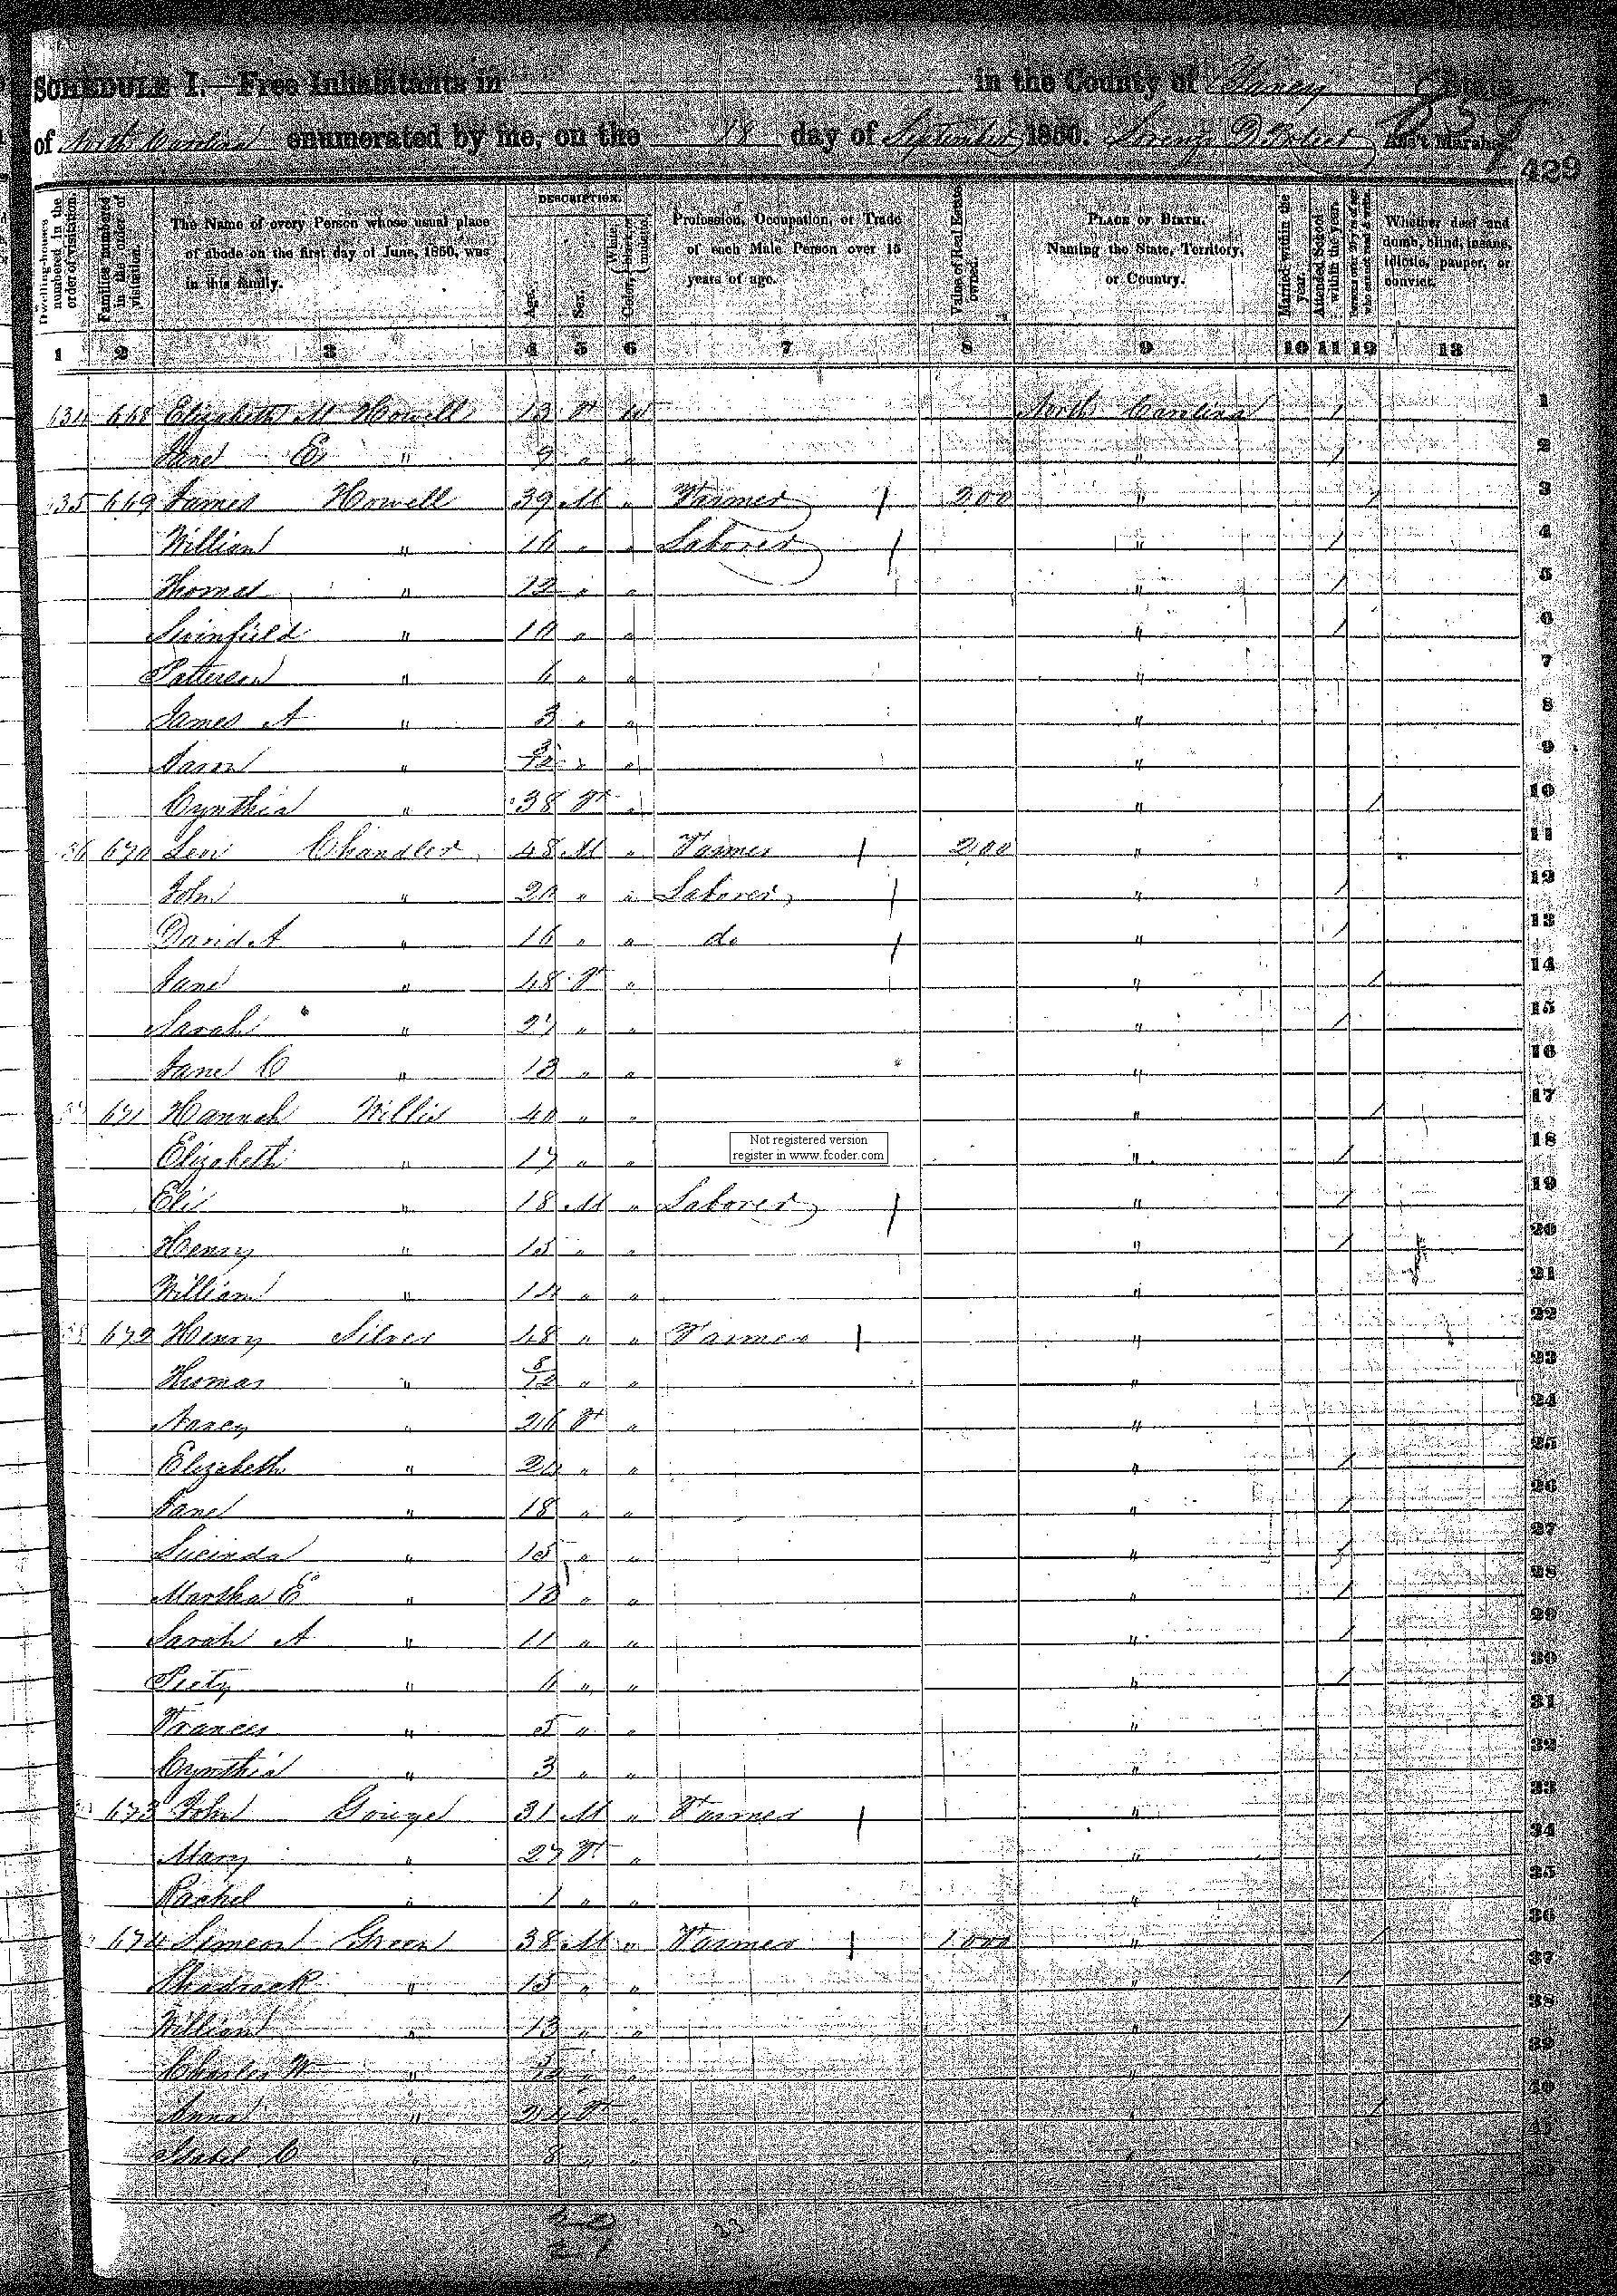 SCHEDULE I.—Free Inhabitants in in the County of Yancy State
of North Carolina enumerated by me, on the 18 day of September 1850. Ass't Marshal.
429
Dwelling-houses numbered in the order of visitation.
Families numbered in the order of visitation.
The Name of every Person whose usual place of abode on the first day of June, 1850, was in this family.
DESCRIPTION.
Age.
Sex.
Color, White, black, or mulatto.
Profession, Occupation, or Trade of each Male Person over 15 years of age.
Value of Real Estate owned.
PLACE OF BIRTH. Naming the State, Territory, or Country.
Married within the year.
Attended School within the year.
Persons over 20 y'rs of age who cannot read & write.
Whether deaf and dumb, blind, insane, idiotic, pauper, or convict.
1 2 3 4 5 6 7 8 9 10 11 12 13
634 668 Elizabeth M Howell 13 F W North Carolina / 1
Jane E " 9 " " " / 2
35 669 James Howell 39 M " Farmer 200 " / 3
William " 16 " " Laborer " / 4
Thomas " 12 " " " / 5
Swinfield " 10 " " " / 6
Patterson " 6 " " " 7
James A " 3 " " " 8
" " " " 9
Cynthia " 38 F " " / 10
36 670 Levi Chandler 48 M " Farmer 200 " 11
John " 20 " " Laborer " / 12
David A " 16 " " do " / 13
Jane " 48 F " " / 14
Sarah " 27 " " " / 15
Jane C " 13 " " " 16
671 Hannah Willis 40 " " " / 17
Elizabeth " 17 " " " / 18
Not registered version
register in www.fcoder.com
Eli " 18 M " Laborer " / 19
Henry " 15 " " " / 20
William " " " " 21
672 Henry Silver 48 " " Farmer " 22
Thomas " 8/12 " " " 23
Nancy " 26 F " " 24
Elizabeth " " " " / 25
Jane " 18 " " " / 26
Lucinda " 15 " " " / 27
Martha E " 13 " " " / 28
Sarah A " 11 " " " / 29
Piety " 6 " " " / 30
Frances " 5 " " " 31
Cynthia " 3 " " " 32
673 John Gouge 31 M " Farmer " 33
Mary " 27 F " " 34
Rachel " 1 " " " 35
674 Simeon Green 38 M " Farmer 1000 " / 36
Shadrack " 15 " " " / 37
William " 13 " " " / 38
Charles W " " " " 39
Anna " F " " / 40
C " 8 " " " 41
42